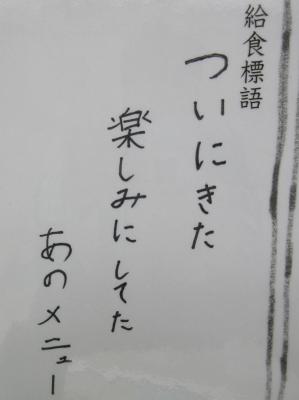 給食標語
ついにきた
楽しみにしてた
あのメニュー